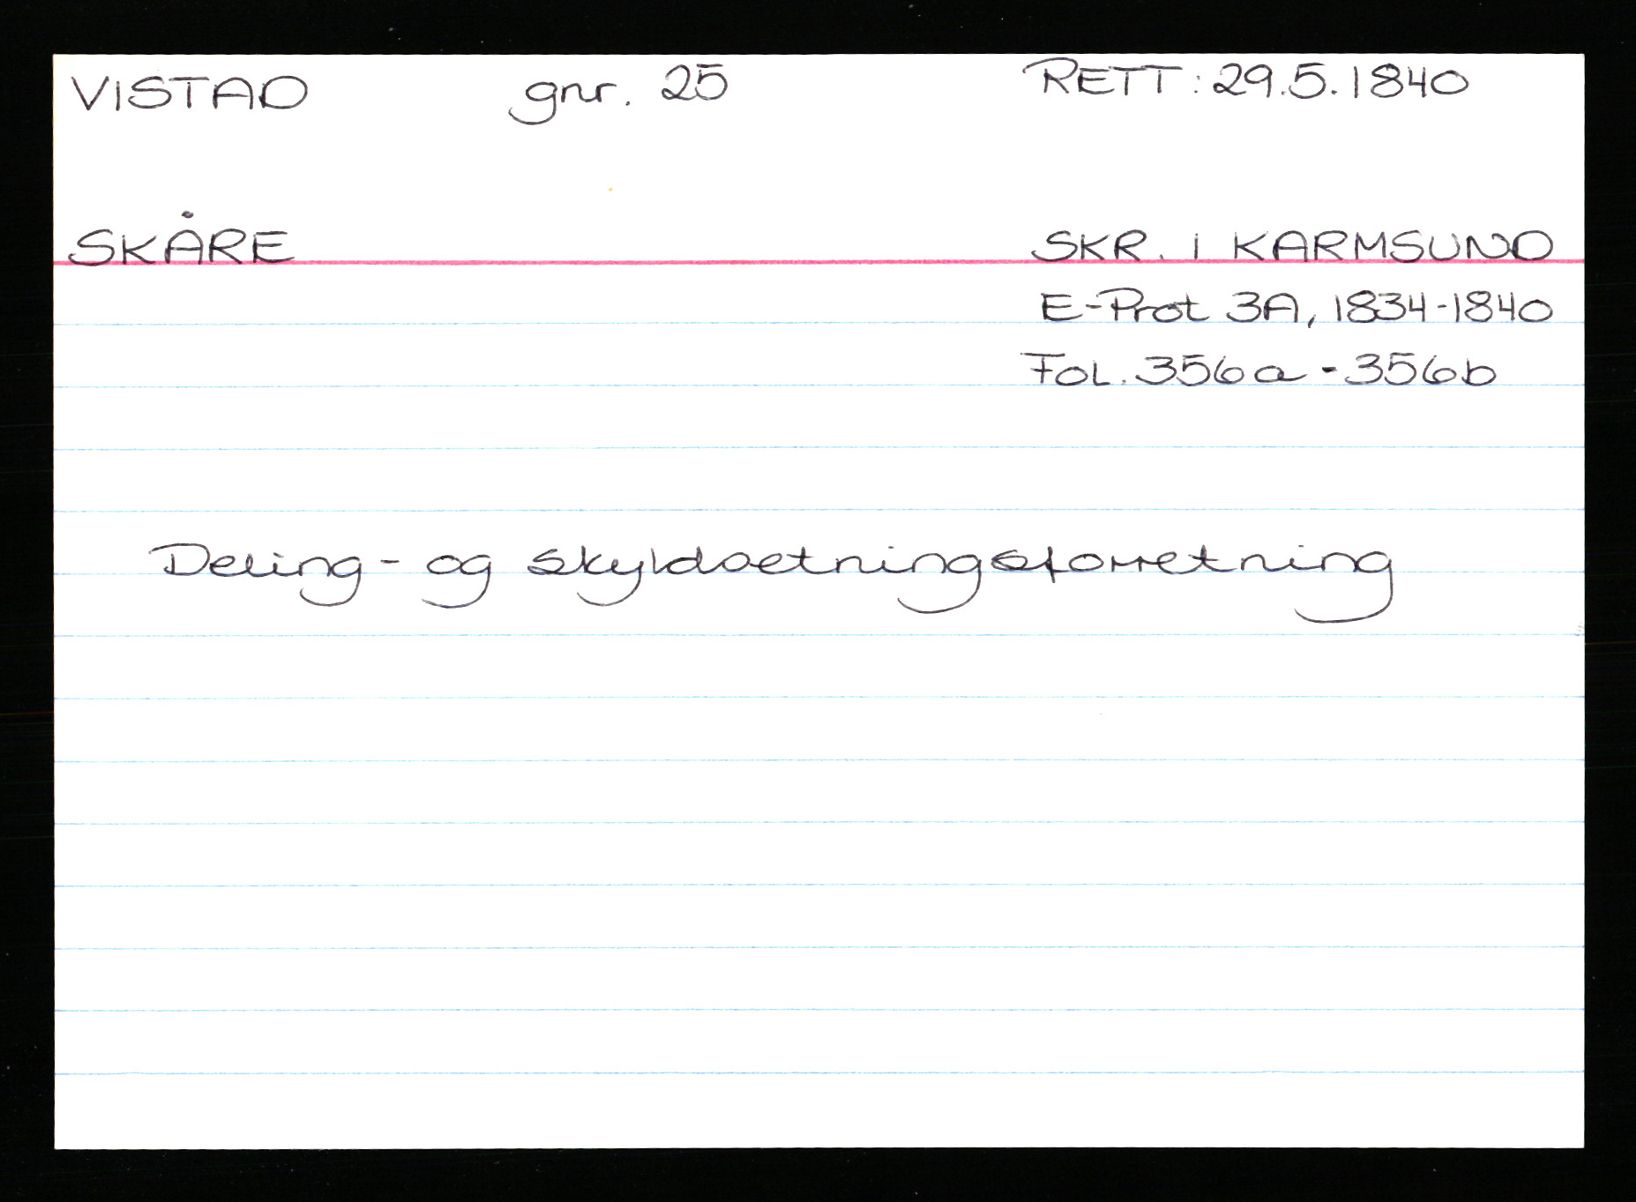 VISTAD gnr. 25 RETT: 29.5.1840
SKÅRE SKR. I KARMSUND
E-Prot 3A, 1834-1840
Fol. 356a - 356b
Deling- og skyldsetningsforretning